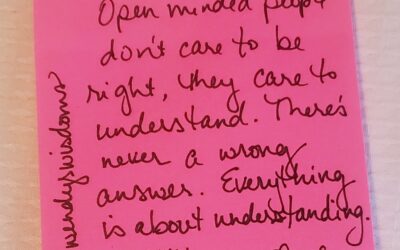 Open minded people
don't care to be
right, they care to
understand. There's
never a wrong
answer. Everything
is about understanding.
wendyswisdoms